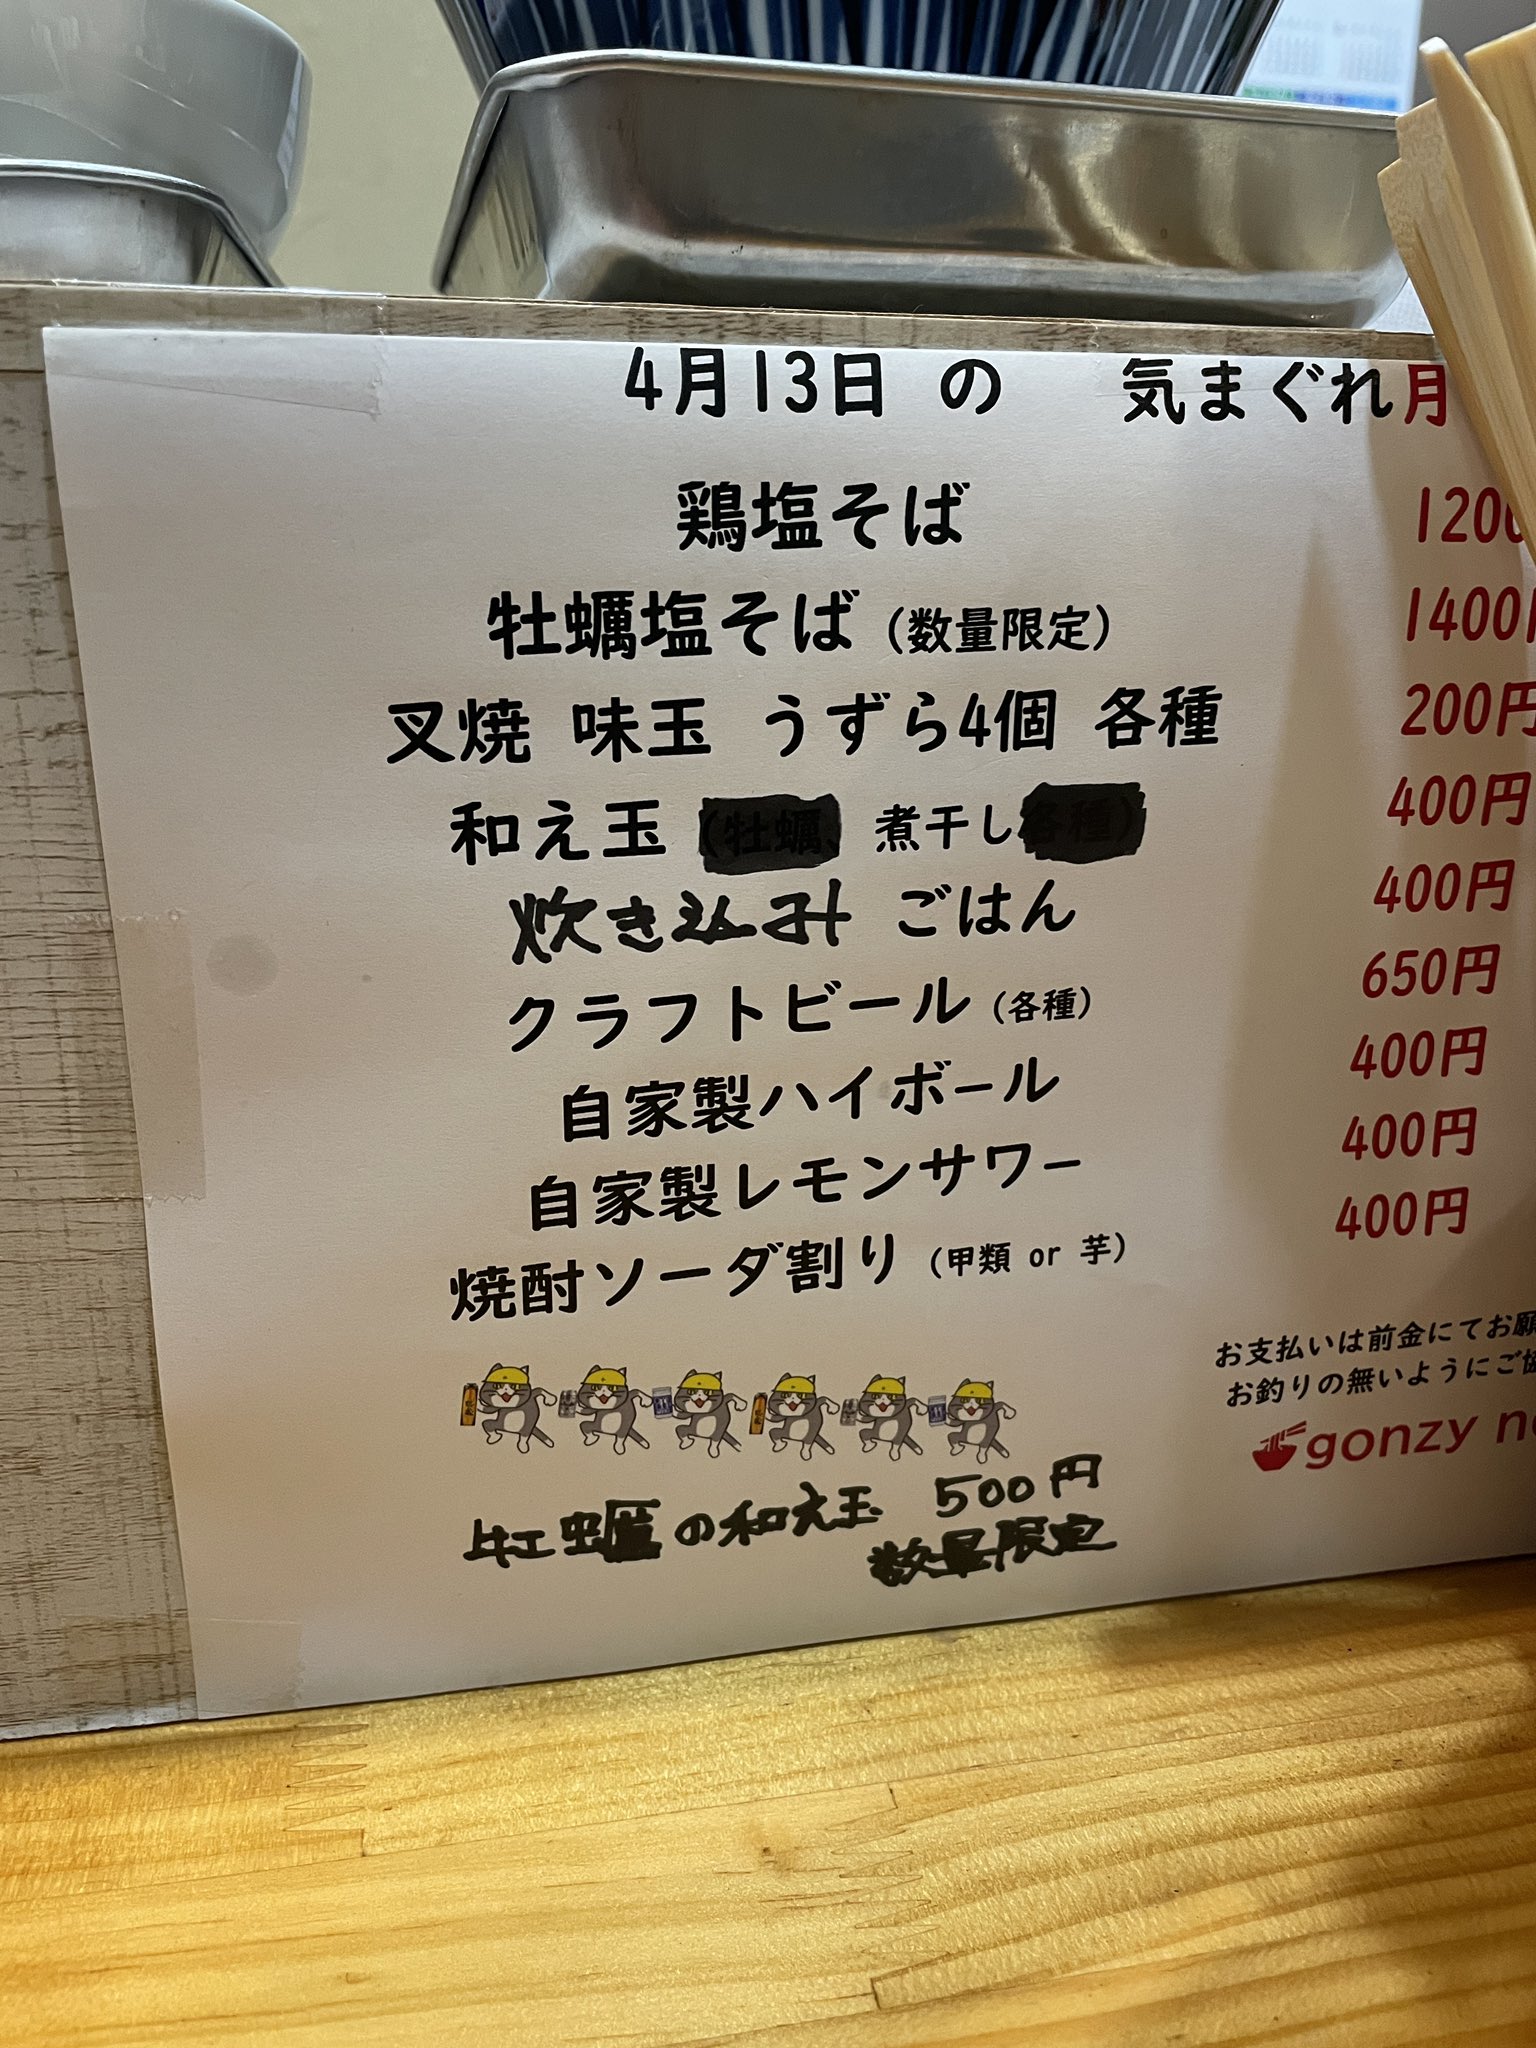 4月13日 の 気まぐれ月
鶏塩そば 1200
牡蠣塩そば (数量限定) 1400円
叉焼 味玉 うずら4個 各種 200円
和え玉 (牡蠣、 煮干し各種) 400円
炊き込み ごはん 400円
クラフトビール (各種) 650円
自家製ハイボール 400円
自家製レモンサワー 400円
焼酎ソーダ割り (甲類 or 芋) 400円
お支払いは前金にてお願
お釣りの無いようにご協
gonzy
牡蠣の和え玉 500円
数量限定